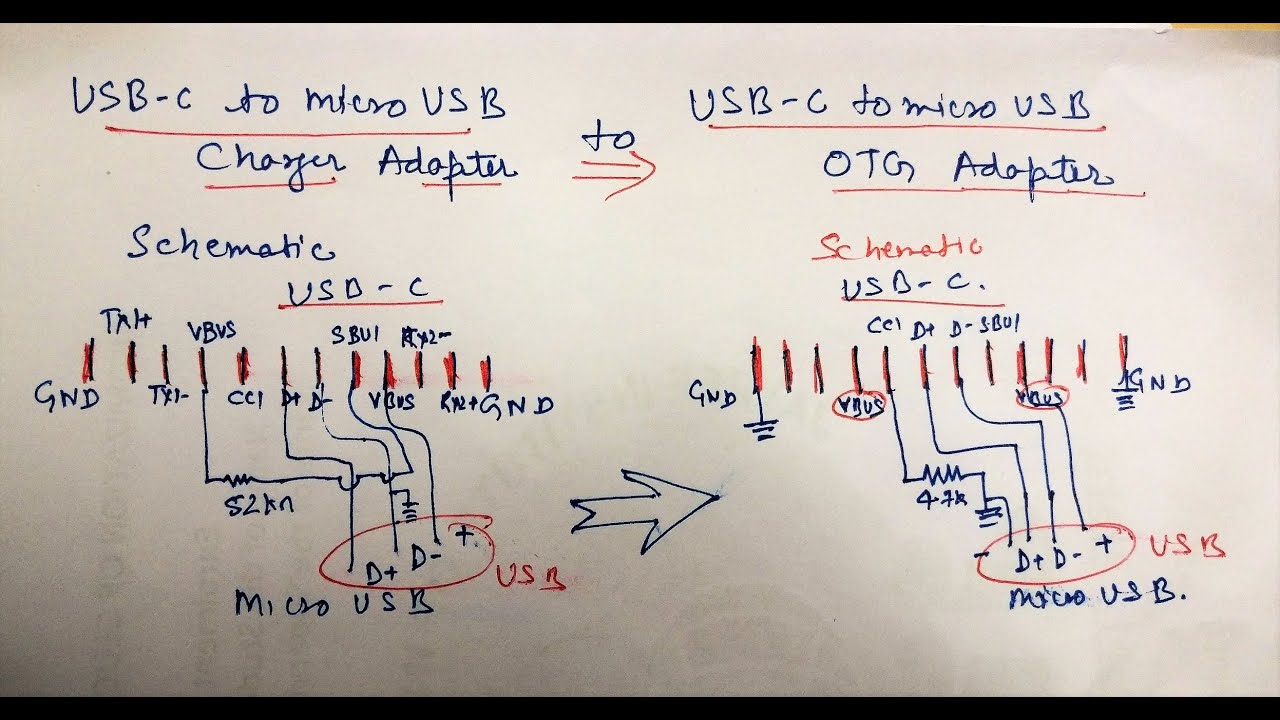 USB-C to micro USB
Charger Adapter
to
USB-C to micro USB
OTG Adapter
Schematic
USB-C
TX1+ VBUS SBU1 RX2-
GND TX1- CC1 D+ D- VBUS RX2+ GND
52kΩ
D+ D- +
USB
Micro USB
Schematic
USB-C.
CC1 D+ D- SBU1
GND VBUS VBUS GND
4.7k
- D+ D- +
USB
Micro USB.